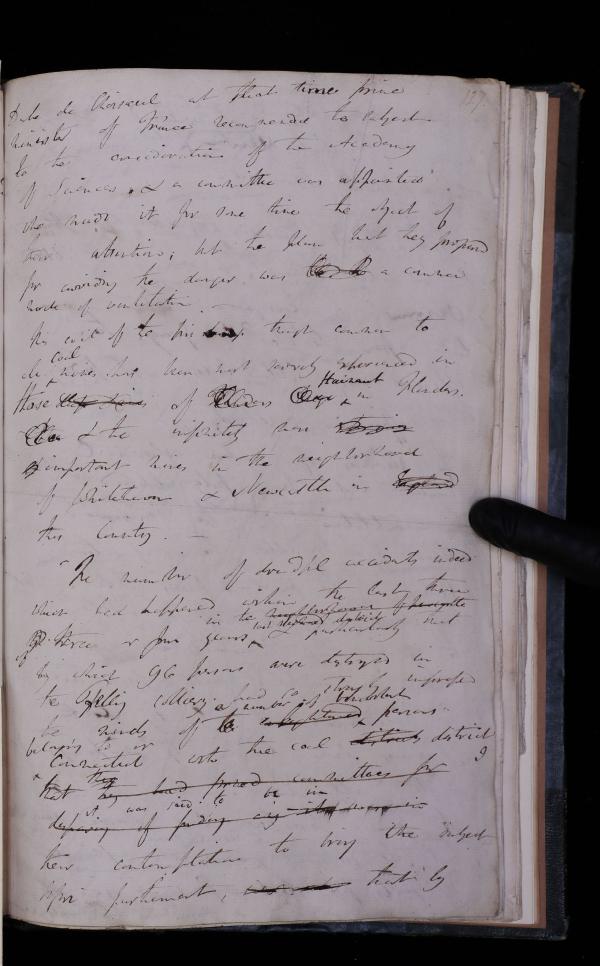 127
Duke de Choiseul at that time prime
minister of France recommended the subject
to the consideration of the Academy
of Sciences, & a committee was appointed
who made it for some time the object of
their attention; but the plan that they proposed
for avoiding the danger was a common
mode of ventilation. —
This evil of the fire damp though common to
all coal mines has been most severely experienced in
those deep mines of Flanders Hainaut in Flanders.
& the infinitely more
important mines in the neighbourhood
of Whitehaven & Newcastle in England
this Country. —
The number of dreadful accidents indeed
which had happened within the last three
in the neighbourhood of Newcastle
or four years & particularly that
by which 96 persons were destroyed in
the Felling colliery had so strongly impressed
the minds of a number of benevolent enlightened persons
belonging to or
connected with the coal district
that they had formed committees for
it was said to be in
their contemplation to bring the subject
before parliament, that by